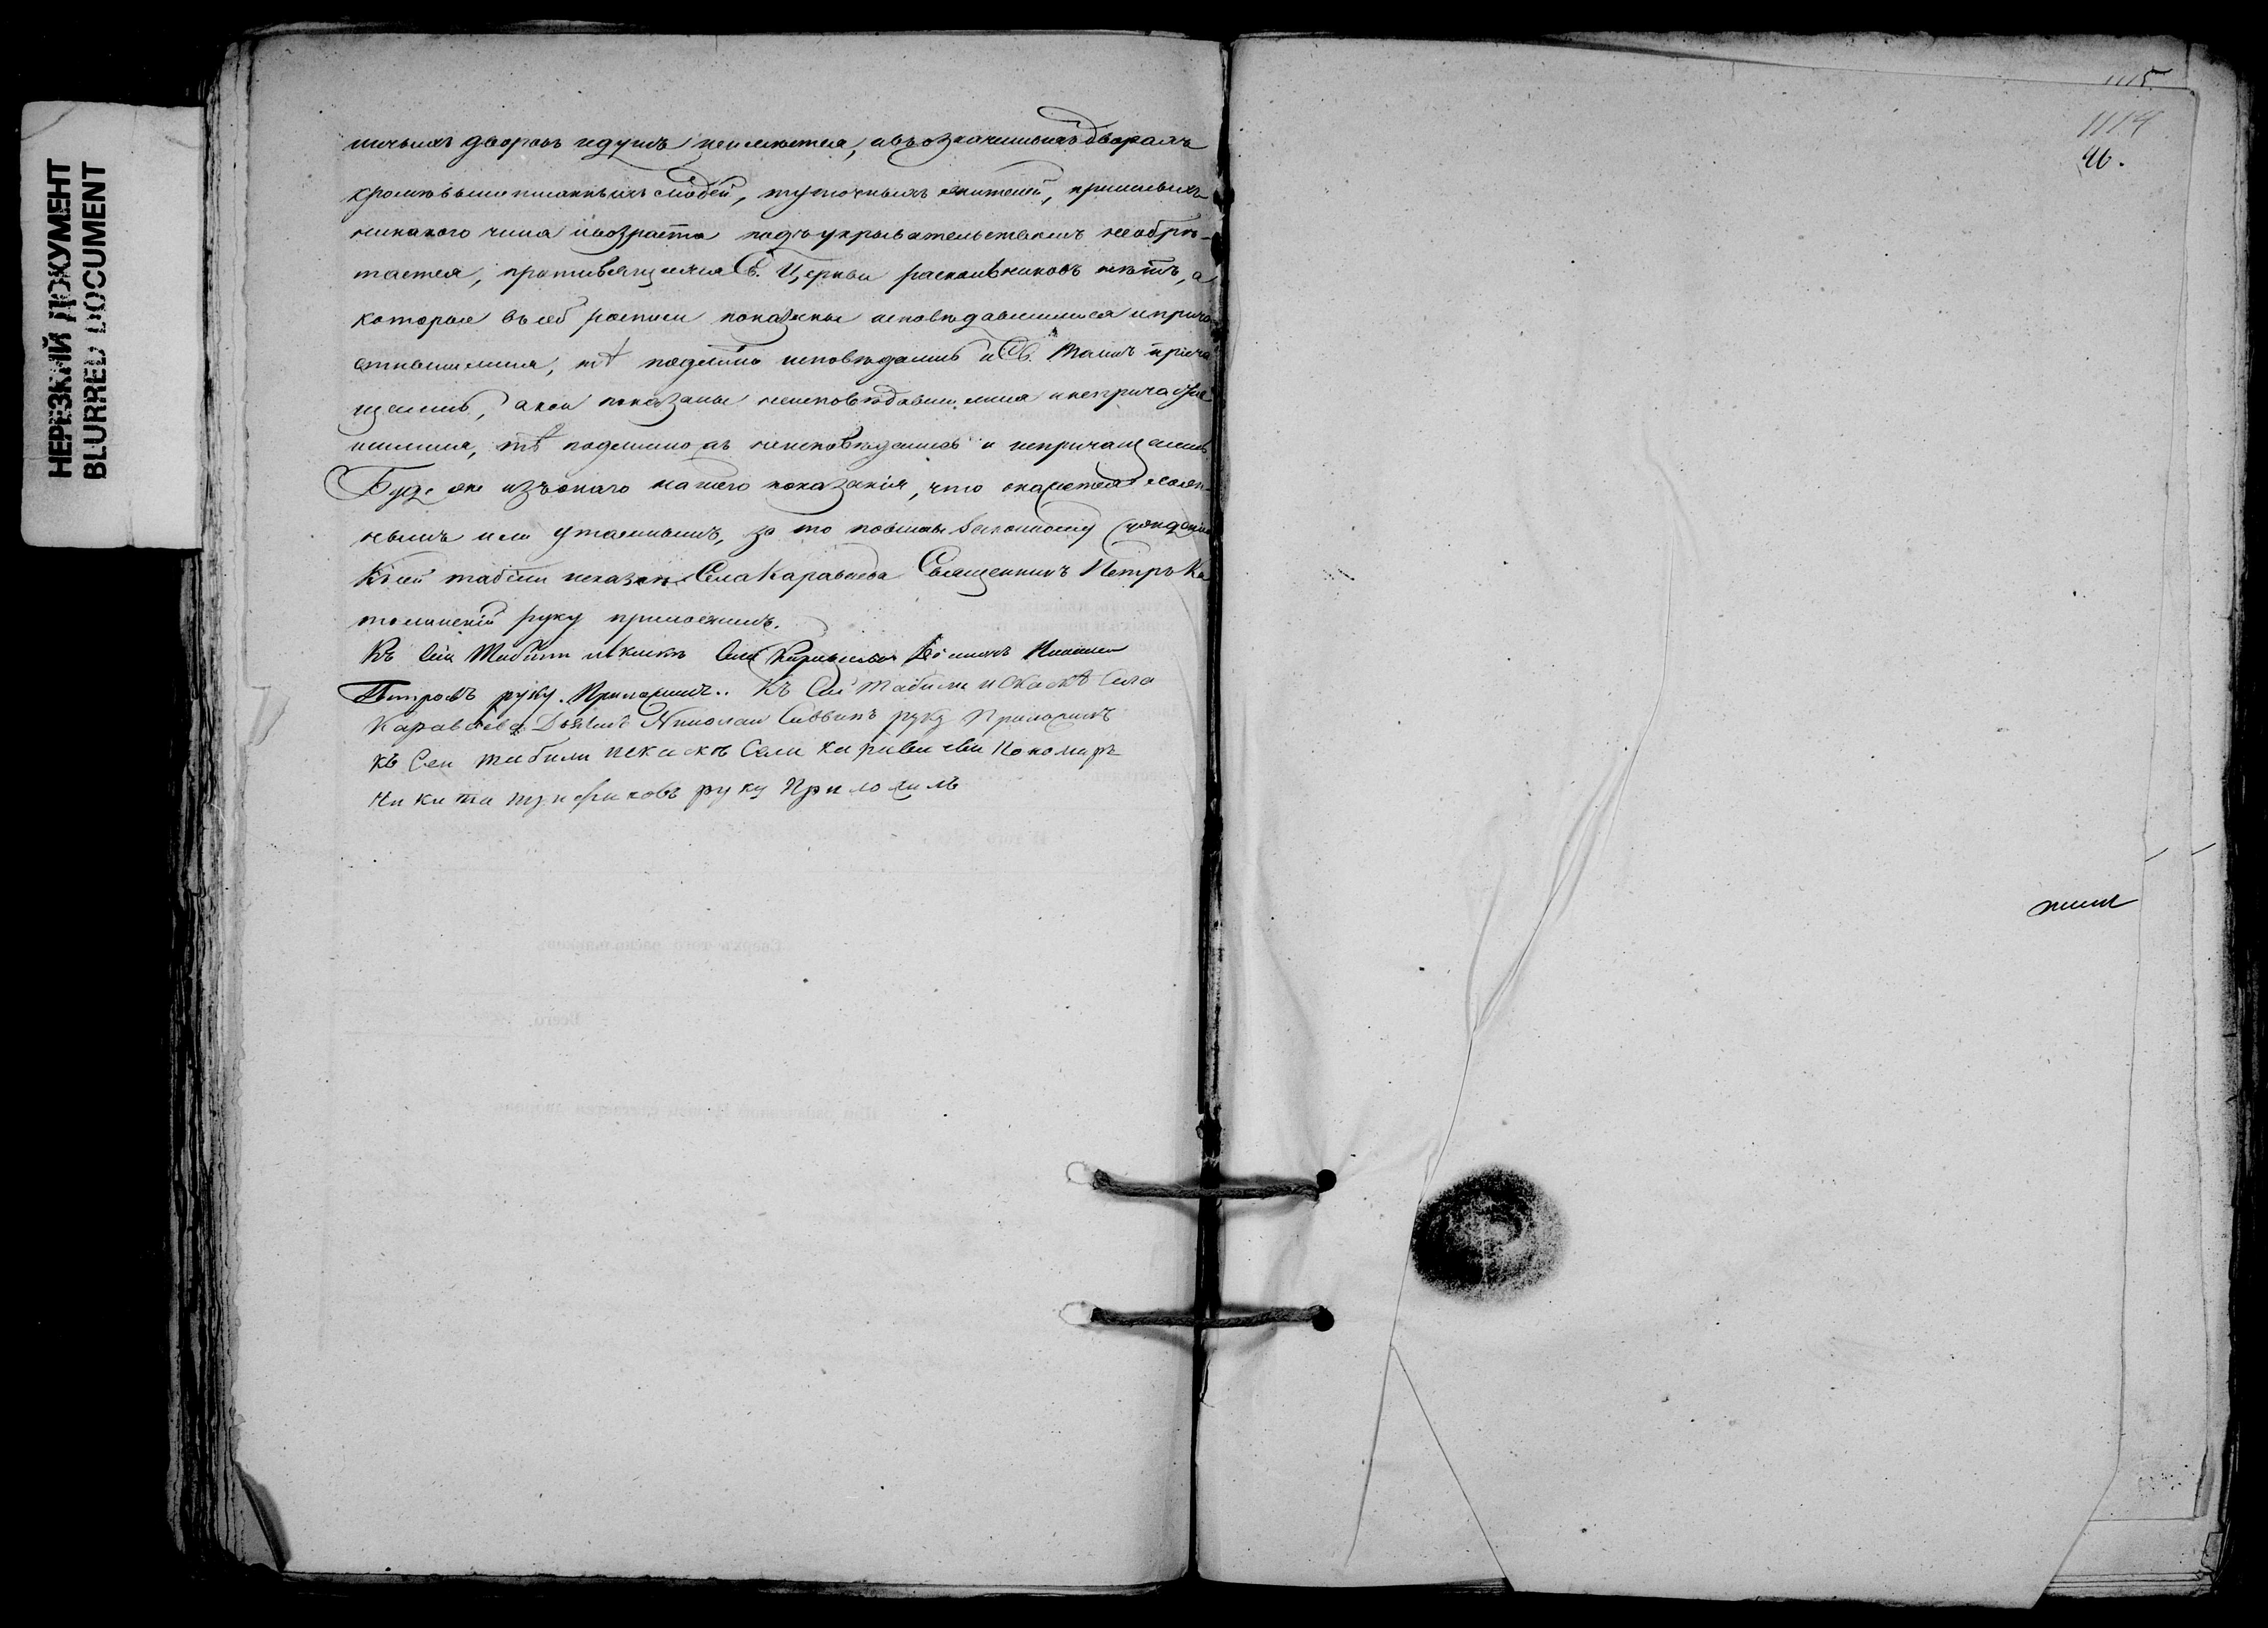 НЕРЕЗКИЙ ДОКУМЕНТ
BLURRED DOCUMENT
1115
1114
46.
дворовъ и душъ неимѣется, а въ означенныхъ дворахъ
кромѣ вышеписанныхъ людей, жителей, пришлыхъ
никакого чина и возраста подъ укрывательствомъ необрѣ-
тается, противящихся Св. Церкви раскольниковъ нѣтъ, а
которые въ сей росписи показаны исповѣдавшимися и прича
стившимися, тѣ подлинно исповѣдались и Св. Таинъ прича
щались, а кои показаны неисповѣдавшимися и непричастив
шимися, тѣ подлинно неисповѣдались и непричащались.
Буде же изъ онаго нашего показанія, что окажется ложн-
нымъ или утаеннымъ, за то повинны законному сужденію
Къ сей табели и сказкѣ Села Караваева Священникъ Петръ Ка
руку приложилъ.
Къ Сей Табели и Сказкѣ Села Караваева
Петровъ руку Приложилъ.. Къ Сей Табели и Сказкѣ Села
Караваева Дьячекъ Николай Саввинъ руку Приложилъ
къ Сей табели и скаскѣ Села караваева Пономарь
Никита руку Приложилъ